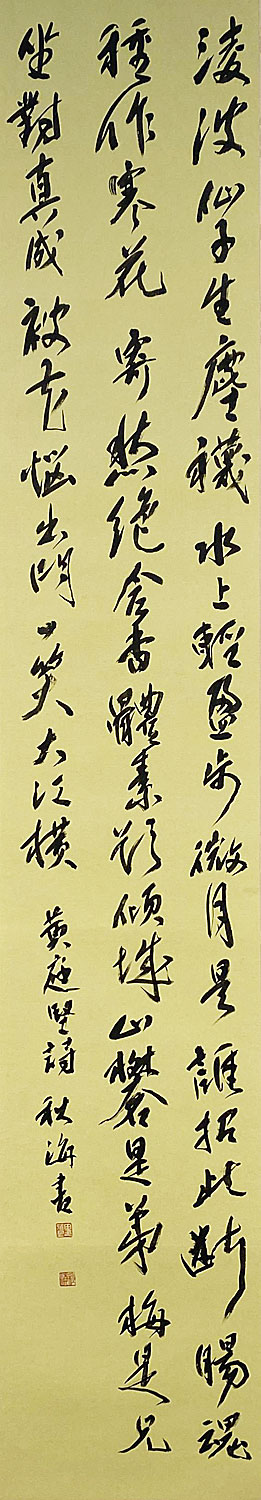 淩波仙子生塵襪水上輕盈步微月是誰招此斷腸魂
種作寒花寄愁絕含香體素欲傾城山礬是弟梅是兄
坐對真成被花惱出門一笑大江橫
黃庭堅詩 秋海書